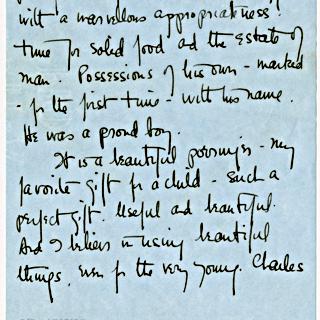 with a marvellous appropriateness!
time for solid food and the estate of
man. Possessions of his own - marked
- for the first time - with his name.
He was a proud boy.
It is a beautiful porringer - my
favorite gift for a child - such a
perfect gift. Useful and beautiful.
And I believe in using beautiful
things, even for the very young. Charles